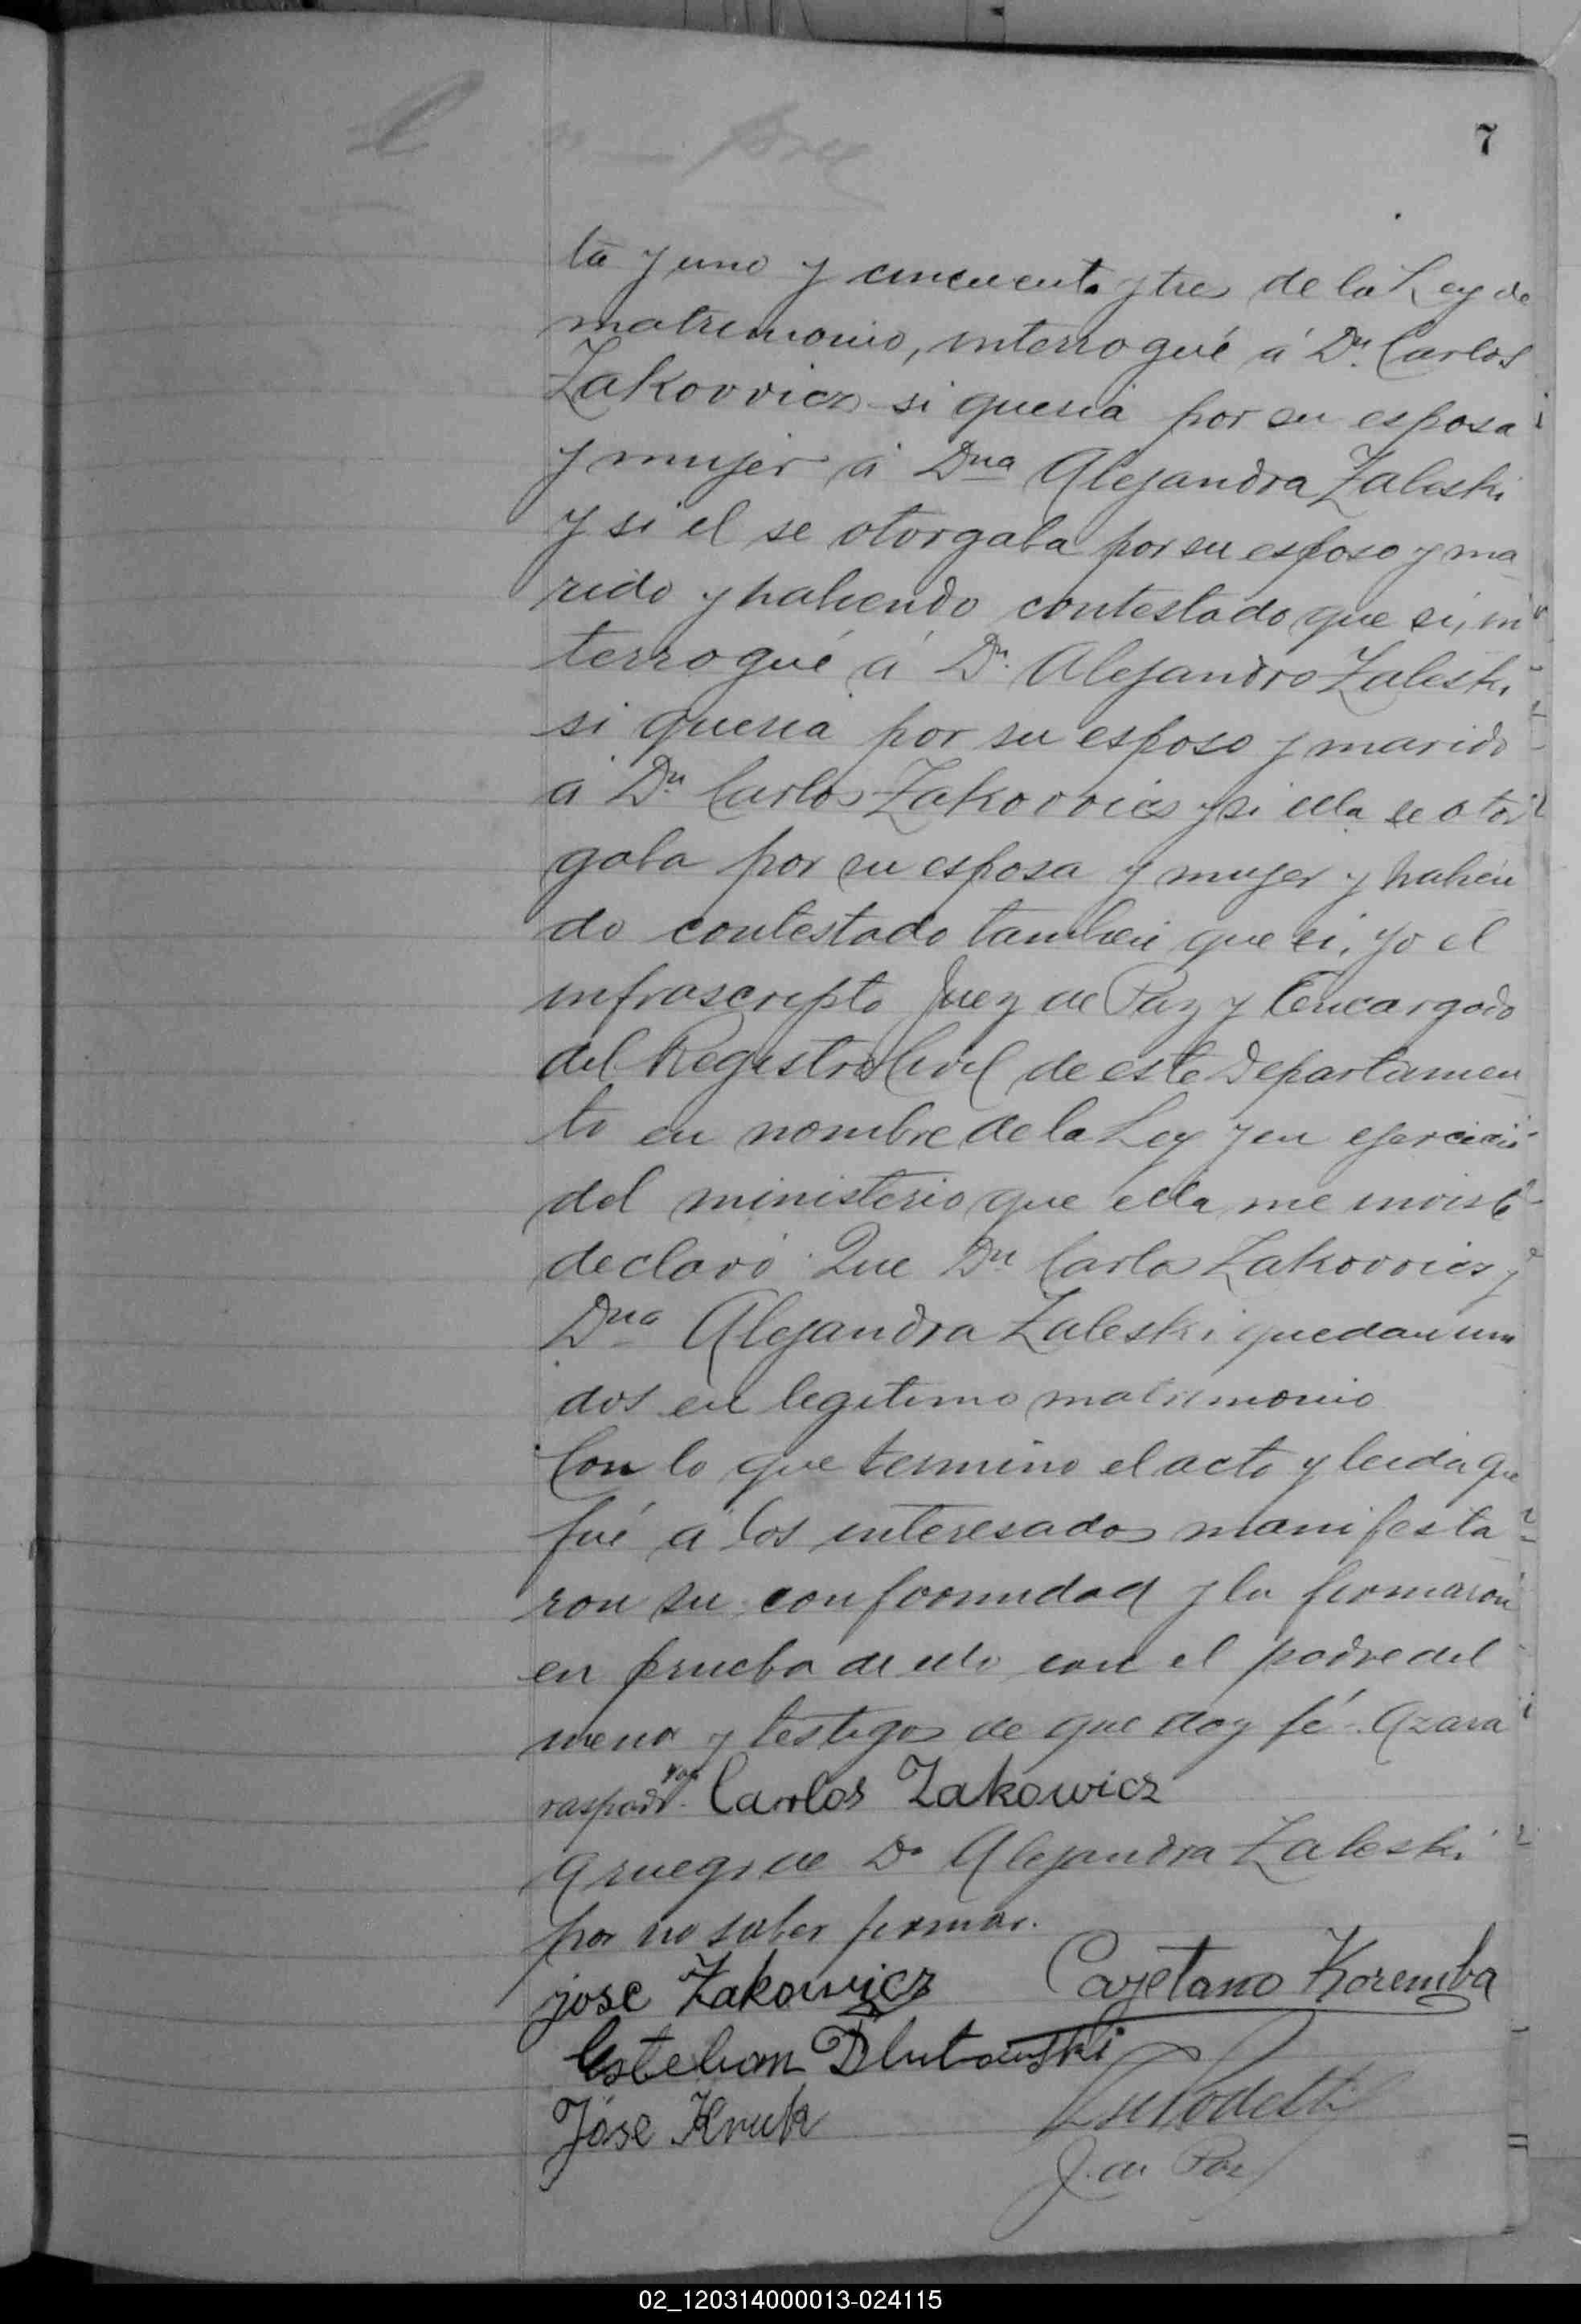 7
ta y uno y cincuenta y tres de la Ley de
matrimonio, interrogué á Dn. Carlos
Zakovvicz si queria por su esposa
y mujer á Dna Alejandra Zaleski
y si el se otorgaba por su esposo y ma
rido y habiendo contestado que si, in
terrogué á Dn. Alejandro Zaleski
si queria por su esposo y marido
á Dn. Carlos Zakovvicz y si ella se otor
gaba por su esposa y mujer y habien
do contestado tambien que si, yo el
infrascripto Juez de Paz y Encargado
del Registro Civil de este Departamen
to en nombre de la Ley y en ejercicio
del ministerio que ella me inviste
declaro: Que Dn Carlos Zakovvicz y
Dna Alejandra Zaleski quedan uni
dos en legitimo matrimonio
Con lo que termino el acto y leida que
fué á los interesados manifesta
ron su conformidad y la firmaron
en prueba de ello con el padre del
menor y testigos de que doy fé. Azara
raspado. Carlos Zakowicz
A ruego de Da Alejandra Zaleski
por no saber firmar.
jose Zakowicz Cayetano Koremba
Esteban Dlutowski
Jose Kruk
J. de Paz
02_120314000013-024115